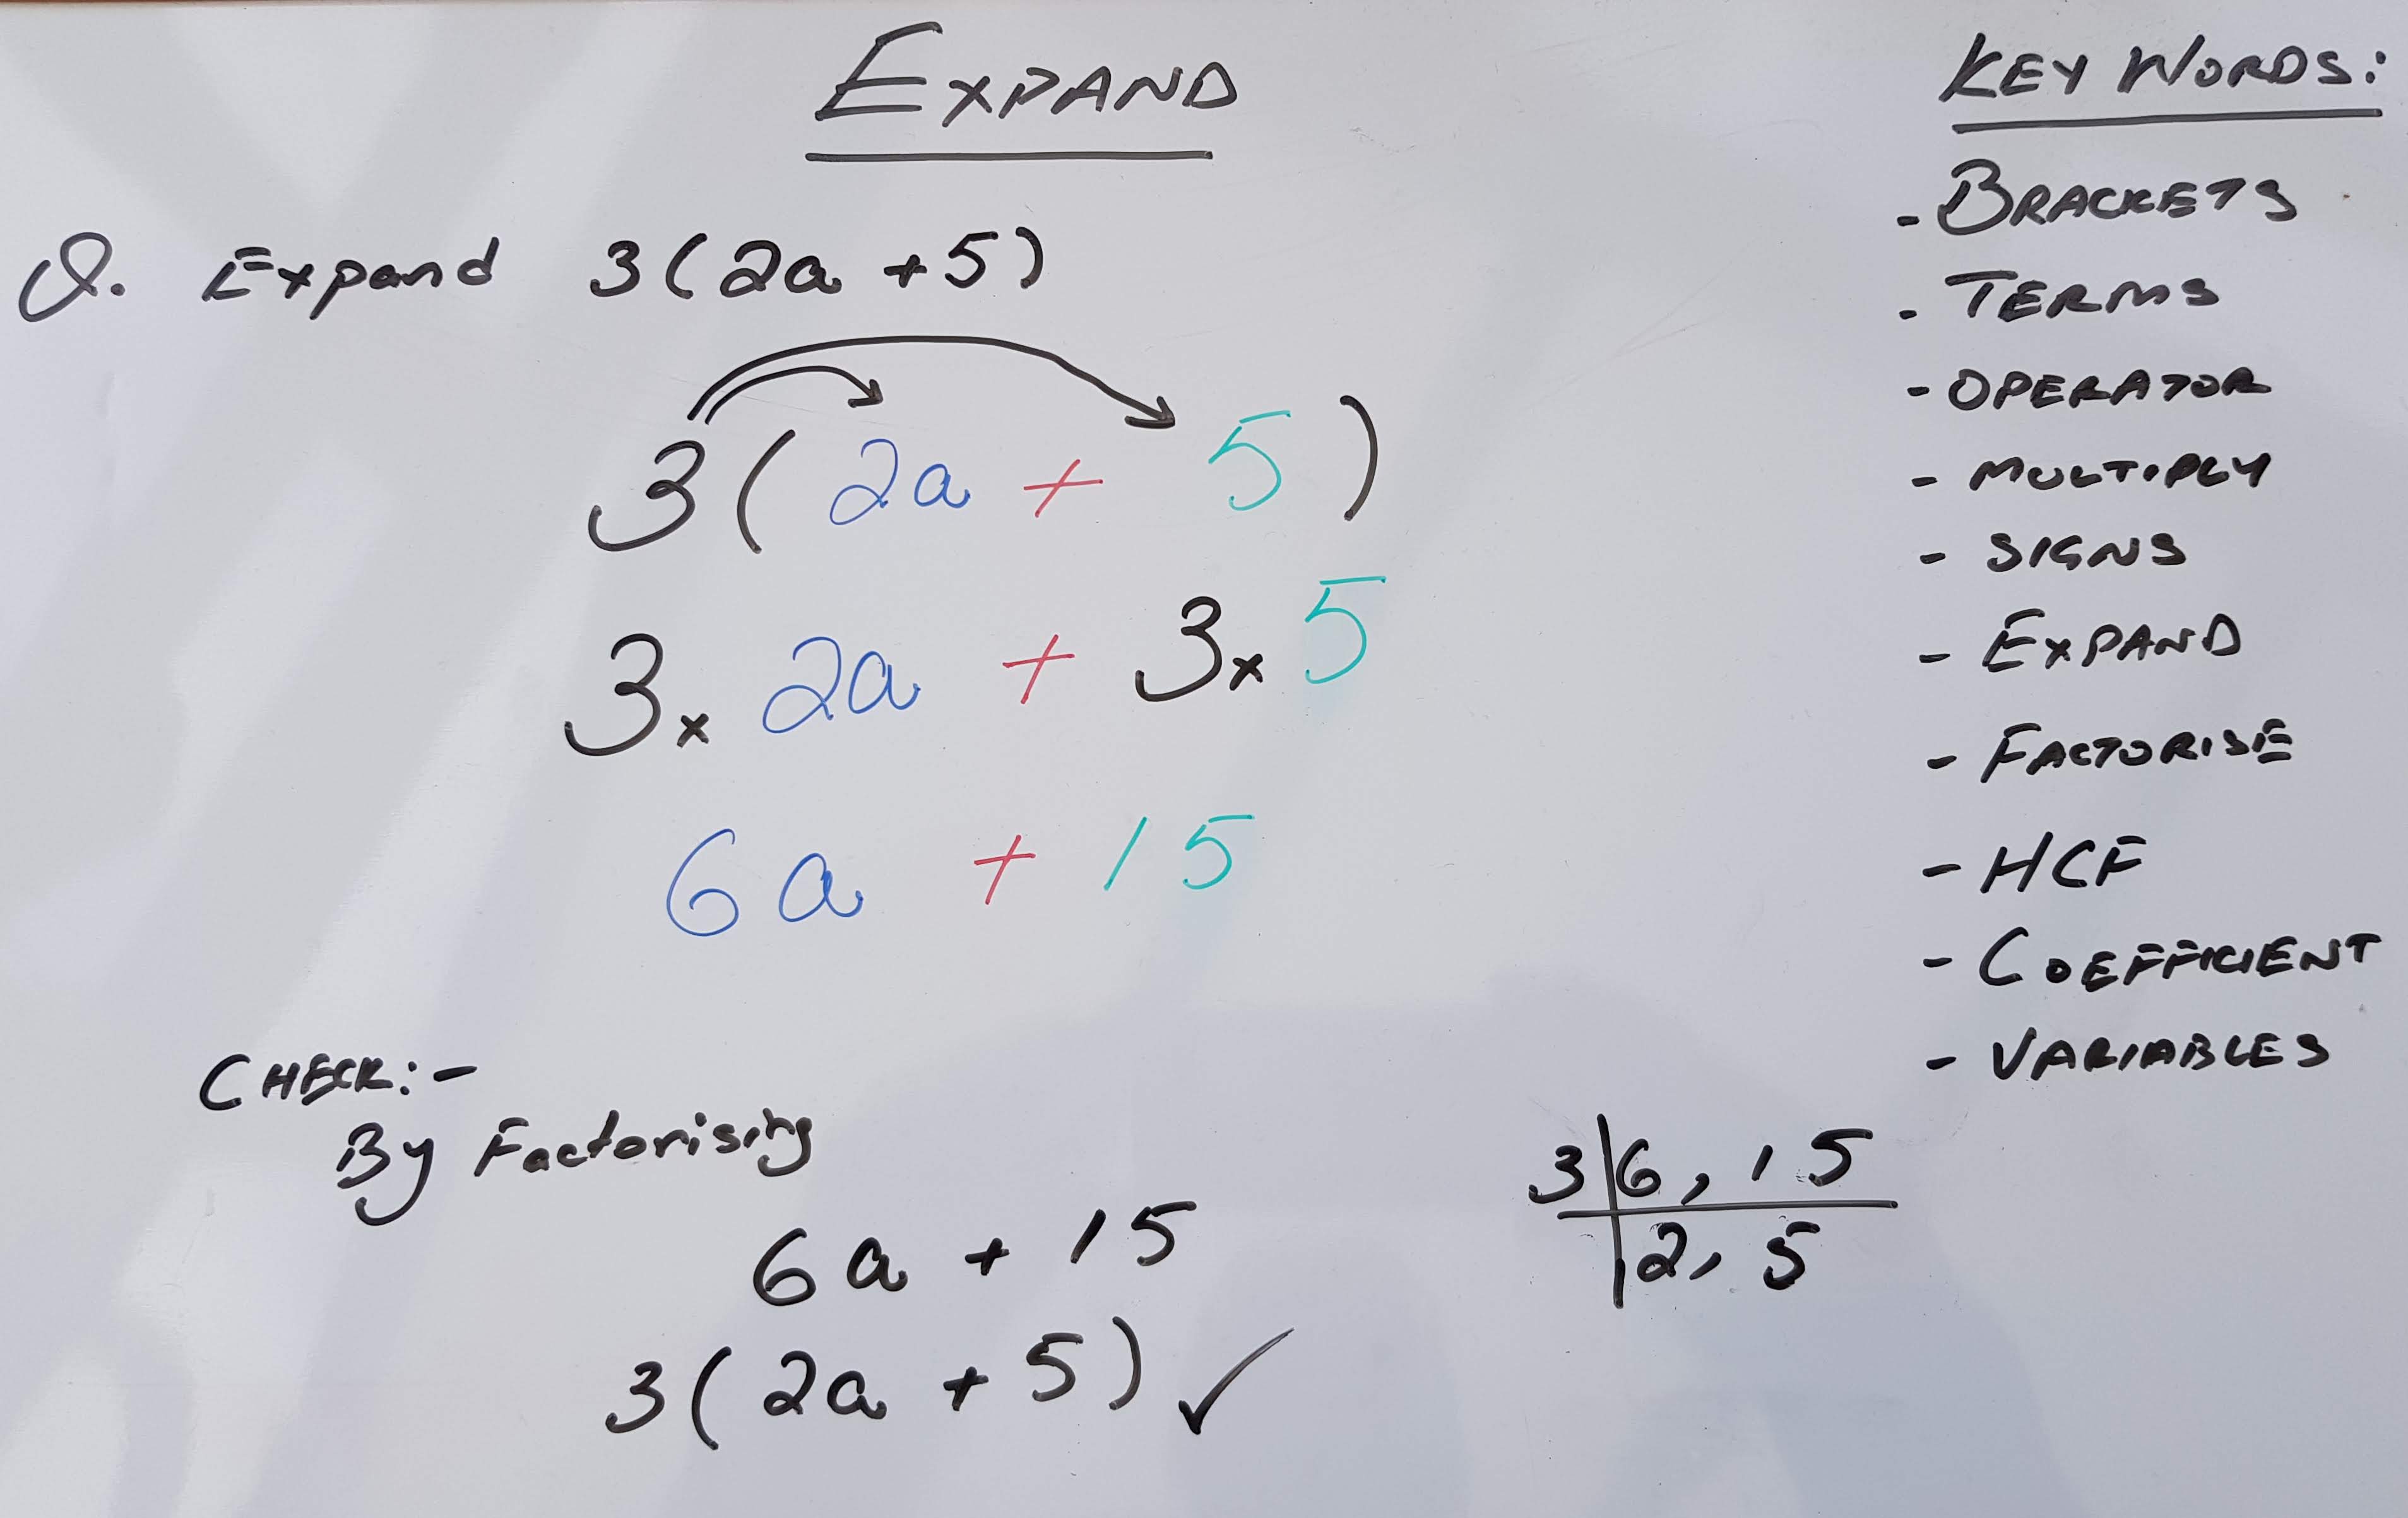 EXPAND
Q. Expand 3(2a + 5)
3(2a + 5)
3 × 2a + 3 × 5
6a + 15
CHECK:-
By Factorising
6a + 15
3(2a + 5) ✓
3|6, 15
|2, 5
KEY WORDS:
- BRACKETS
- TERMS
- OPERATOR
- MULTIPLY
- SIGNS
- EXPAND
- FACTORISE
- HCF
- COEFFICIENT
- VARIABLES